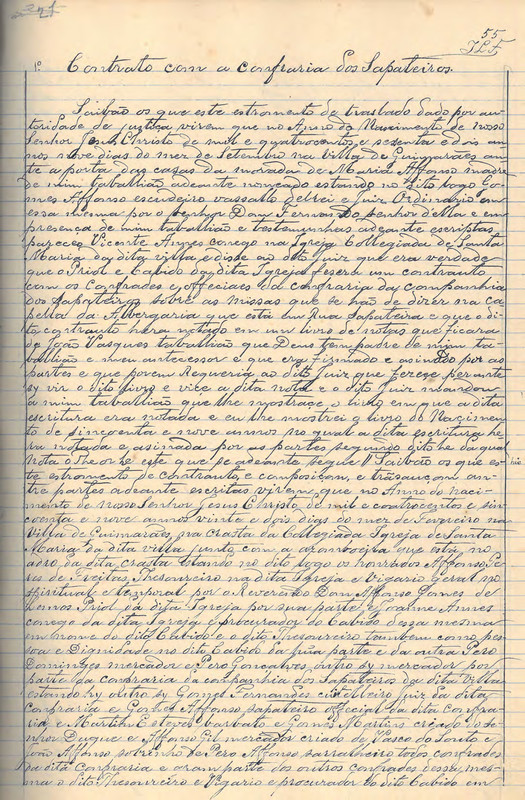 55
1º Contrato com a confraria dos Sapateiros.
Saibão os que este estromento de traslado dado por au-
toridade de justiça virem que no Anno do Nascimento de Noso
Senhor Jesu Christo de mil e quatrocentos e setenta e dois an-
nos nove dias do mez de Setembro na Villa de Guimarães an-
te a porta das casas da morada de Maria Affonso madre
de mim tabalião adeante nomeado estando no dito logo Go-
mes Affonso escudeiro vassallo delrei e Juiz Ordinario em
essa mesma por o Senhor Dom Fernando Senhor della e em
presença de mim tabalião e testemunhas adeante escriptas
pareceo Vicente Annes conego na Igreja Collegiada de Santa
Maria da dita villa e disse ao dito juiz que era verdade
que o Priol e Cabido da dita Igreja fezera um contrauto
com os Confrades e officiaes da confraria da companhia
dos Sapateiros sobre as missas que se hão de dizer na ca-
pella da Alvergaria que está em Rua Sapateira e que o di-
to contrauto hera notado em um livro de notas que ficara
de João Vasques tabalião que Deus tem padre de mim ta-
balião e meu antecessor e que era firmado e asinado por as
partes e que porem Requeria ao dito Juiz que fezese perante
sy vir o dito livro e vise a dita nota e o dito Juiz mandou
a mim tabalião que lhe mostrase o livro em que a dita
escritura era notada e eu lhe mostrei o livro do Nacimen-
to de sincoenta e nove annos no qual a dita escritura he-
ra notada e asinada por as partes segundo dito he da qual
nota o theor he este que se adeante segue Saibão os que es-
te estromento de contrauto e composiçom, e transauçom an-
tre partes adeante escritas virem que no Anno do naci-
mento de nosso Senhor Jesus Christo de mil e coatrocentos e sin-
coenta e nove annos vinte e dois dias do mez de Fevereiro na
Villa de Guimarães na crasta da Collegiada Igreja de Santa
Maria da dita villa junto com a que está no
da dita crasta estando no dito logo os honrados Affonso Pe-
res de Freitas, Thesoureiro na dita Igreja e Vigario geral no
spiritual e temporal por o Reverendo Dom Affonso Gomes de
Lemos Priol da dita Igreja por sua parte e Joanne Annes
conego da dita Igreja e procurador do Cabido dessa mesma
em nome do dito Cabido e o dito Thesoureiro tambem como pes-
soa e Dignidade no dito Cabido da hũa parte e da outra Pero
Domingues mercador e Pero Gonçalves, outro sy mercador por
parte da confraria da companhia dos Sapateiros da dita Villa
estando hy outro sy Gomes Fernandes Juiz da dita
Confraria e Gonçallo Affonso sapateiro official da dita Confra-
ria e Martim Esteves barbato e Gomes Martins criado do Se-
nhor Duque e Affonso Gil mercador criado de Vasco do Souto e
João Affonso sobrinho de Pero Affonso sarralheiro todos confrades
na dita Confraria e oram parte dos outros confrades dessa mes-
ma o dito Thesoureiro e Vigario e procurador do dito Cabido em